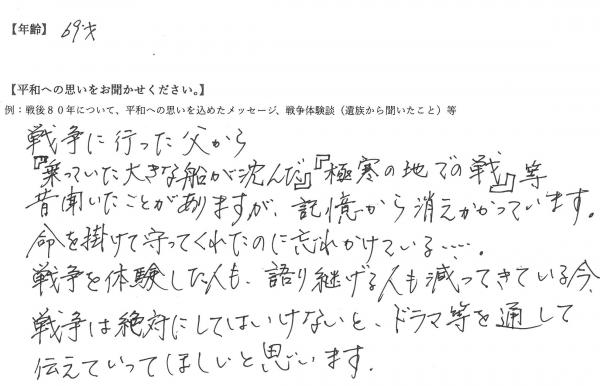 【年齢】 69才
【平和への思いをお聞かせください。】
例：戦後８０年について、平和への思いを込めたメッセージ、戦争体験談（遺族から聞いたこと）等
戦争に行った父から
『乗っていた大きな船が沈んだ』『極寒の地での戦』等
昔聞いたことがありますが、記憶から消えかかっています。
命を掛けて守ってくれたのに忘れかけている……。
戦争を体験した人も、語り継げる人も減ってきている今、
戦争は絶対にしてはいけないと、ドラマ等を通して
伝えていってほしいと思います。